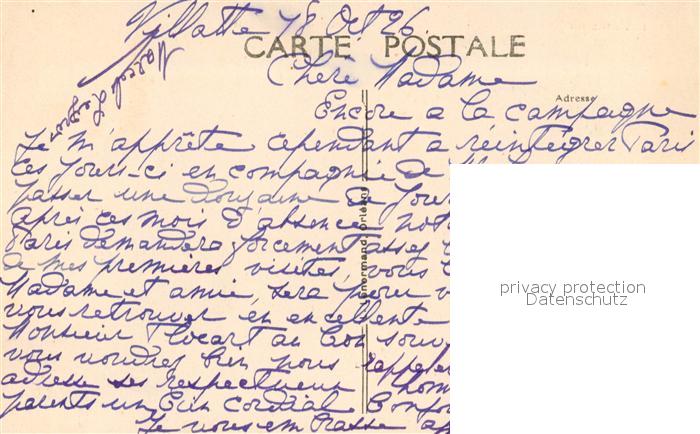 Villatte 18 Oct 26
CARTE POSTALE
Chère Madame
Adresse
Encore a la campagne
Je m'apprête cependant a réintégrer Paris
ces jours-ci en compagnie de
passer une douzaine de jour
après ces mois d'absence Not
Paris demandera forcement assez
de mes premières visites, vous
Madame et amie, sera pour v
vous retrouver en excellente
Monsieur Flocart au bon souv
vous voudrez bien nous rappeler
adresse ses respectueux hom
parents un bien cordial bonjo
Je vous embrasse
Lenormand Orléans
privacy protection
Datenschutz